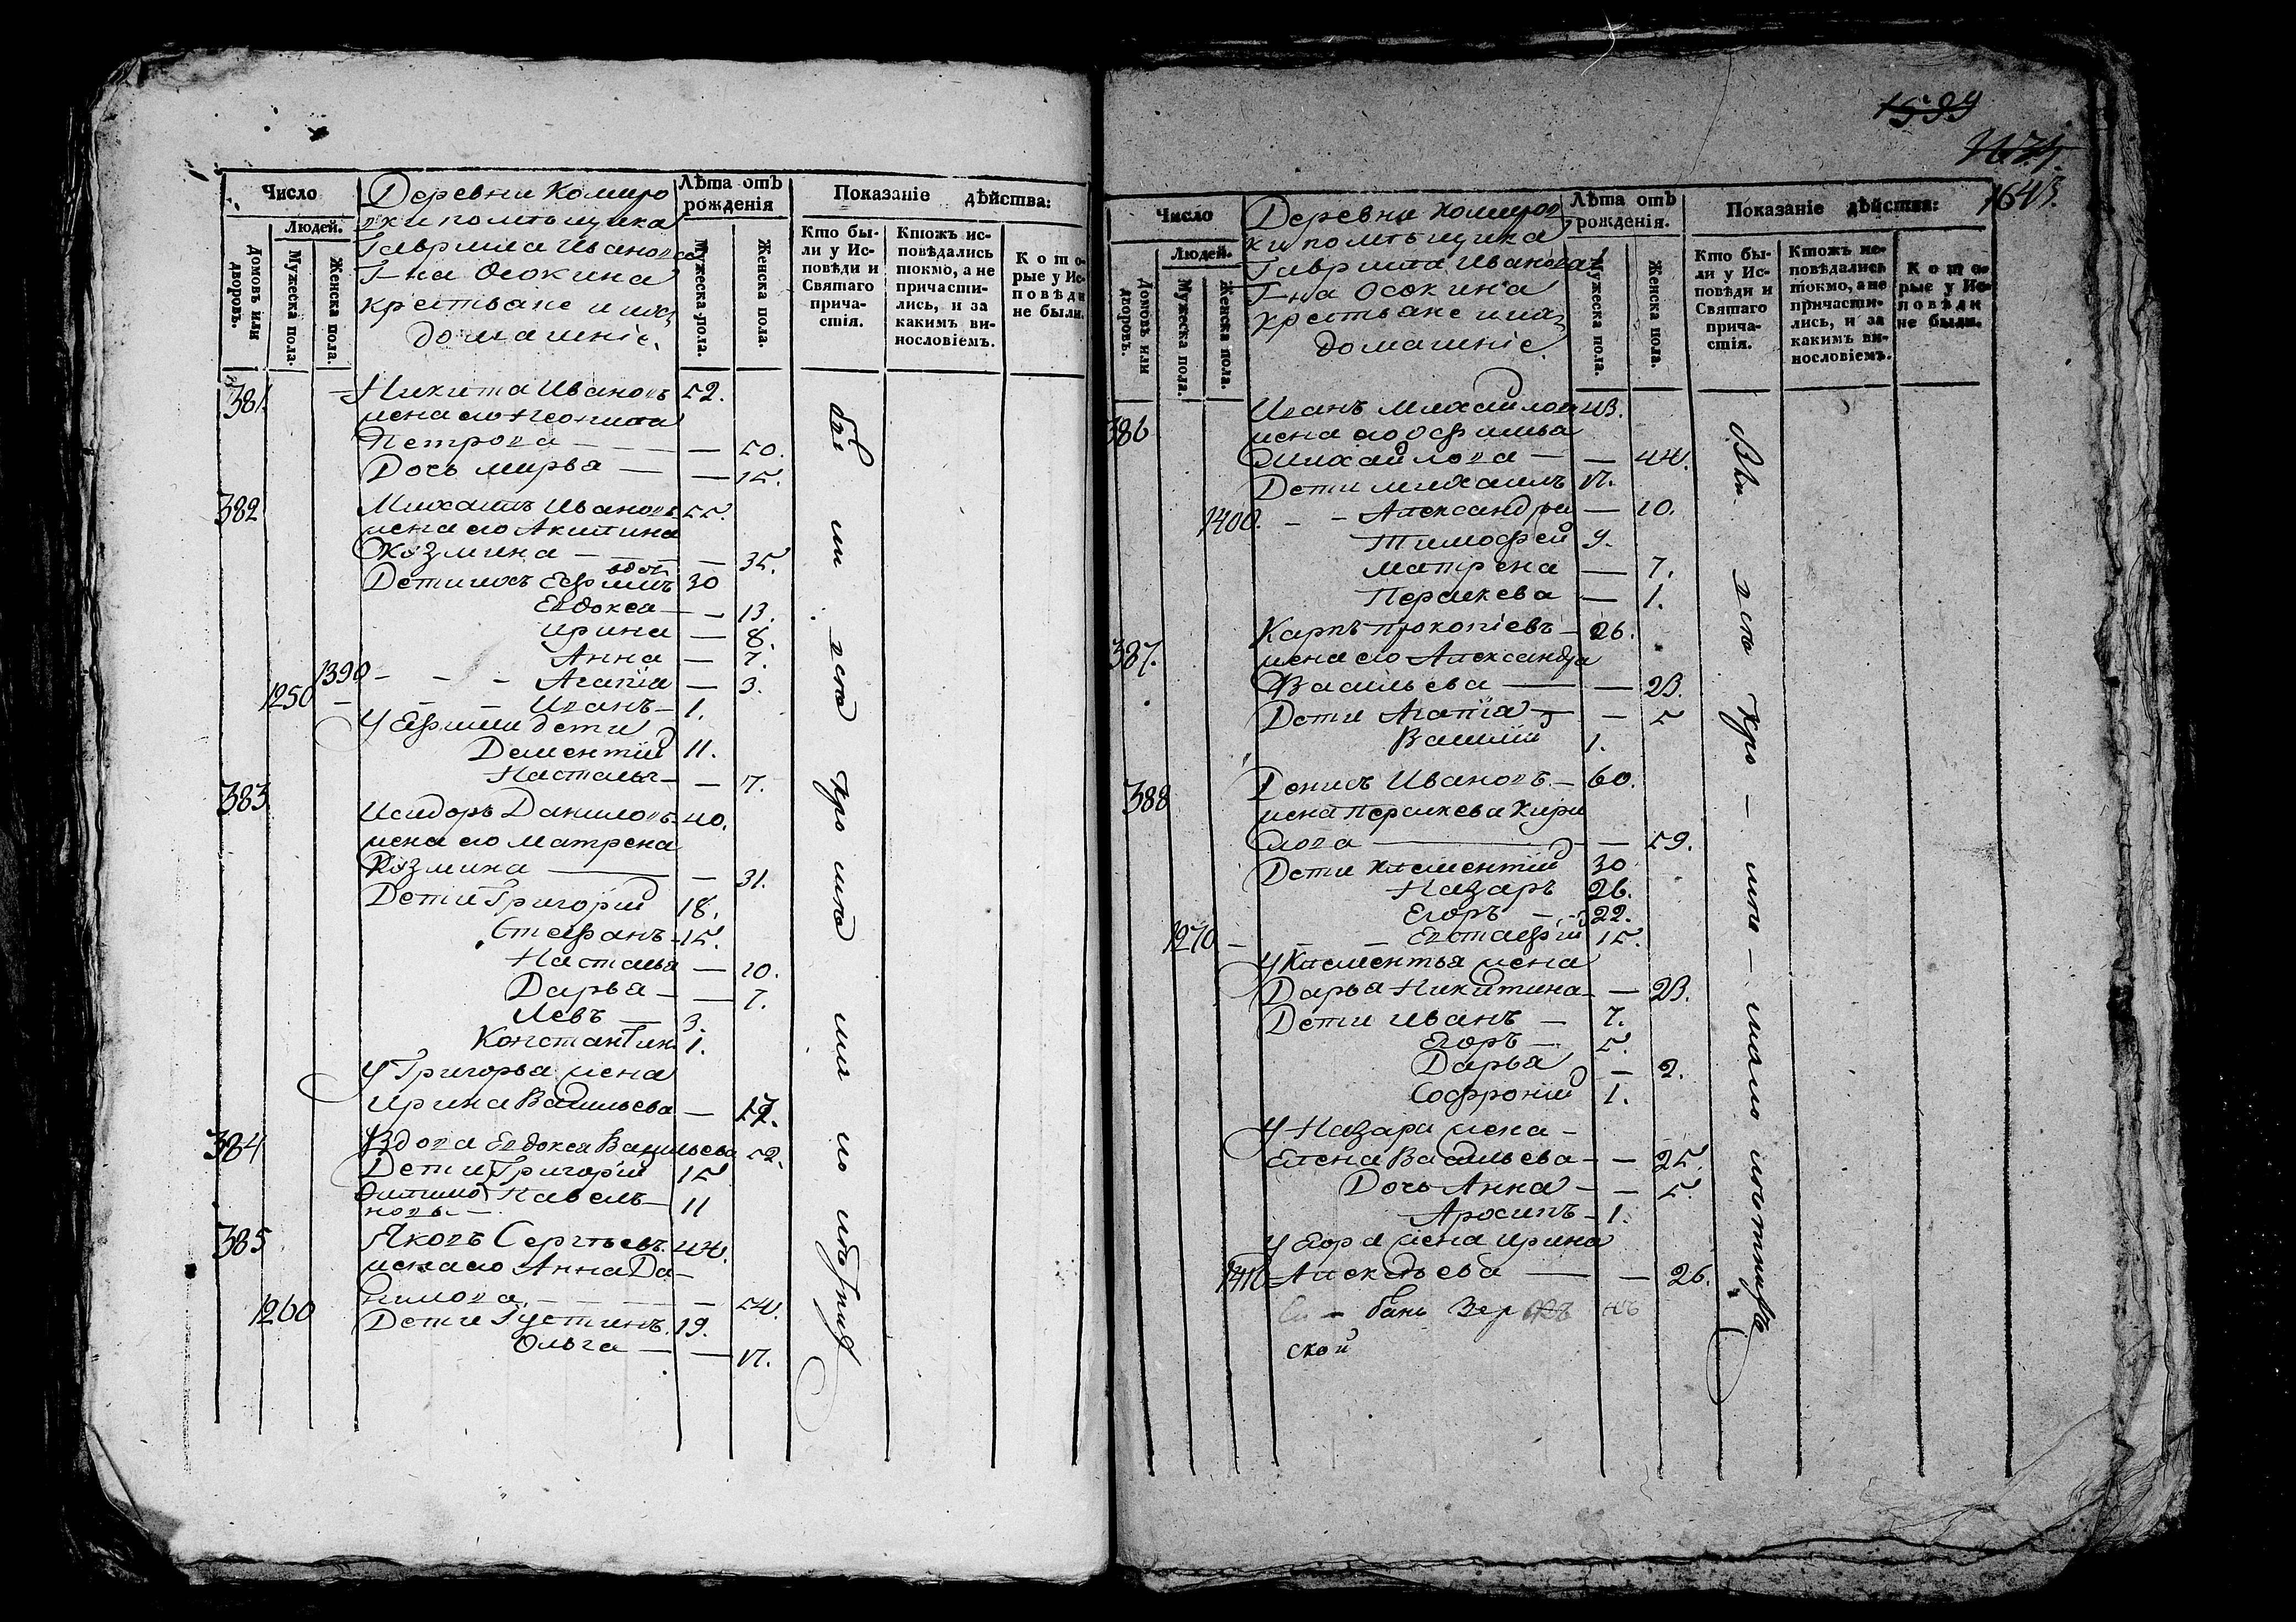 1599
1643.
Число
Людей.
Домовъ или дворовъ.
Мужеска пола.
Женска пола.
Деревни Комаро
вки помѣщика
Гаврила Иванова
Г-на Осокина
крестьяне и ихъ
домашніе.
Лѣта отъ рожденія
Мужеска пола.
Женска пола.
Показаніе дѣйства:
Кто бы-
ли у Ис-
повѣди и
Святаго
прича-
стія.
Ктожъ ис-
повѣдались
токмо, а не
причасти-
лись, и за
какимъ ви-
нословіемъ.
Кото-
рые у Ис-
повѣди
не были.
381. Никита Ивановъ 52.
жена его
Петрова — — 50.
Дочь марья — — 15.
382 Михаилъ Ивановъ 55.
жена его Акилина
Козмина — — 35.
Дети ихъ Ефимъ вдов 30
Евдокеа — — 13.
Ирина — 8.
Анна — 7.
1390 - - - Агапіа — 3.
1250 - - - Иванъ — 1.
У Ефима дети
Дементій 11.
Насталья — 7.
383 Исидоръ Даниловъ 40.
жена его матрена
Козмина — — 31.
Дети Григорій 18.
Стефанъ 15.
Насталья — 10.
Дарья — — 7.
Левъ — 3.
Константин. 1.
У Григорья жена
Ирина Васильева —
384 Вдова Евдокеа Васильева 52.
Дети Григорій 15
Павелъ — 11
385 Яковъ Сергѣевъ. 44.
жена его Анна Да-
нилова. — — — 54.
1260 Дети Густинъ. 19.
Ольга — — 17.
Число
Людей.
Домовъ или дворовъ.
Мужеска пола.
Женска пола.
Деревни Комаров
ки помѣщика
Гаврила Иванова
Г-на Осокина
крестьяне и ихъ
домашніе.
Лѣта отъ рожденія.
Мужеска пола.
Женска пола.
Показаніе дѣйства:
Кто бы-
ли у Ис-
повѣди и
Святаго
прича-
стія.
Ктожъ ис-
повѣдались
токмо, а не
причасти-
лись, и за
какимъ ви-
нословіемъ.
Кото-
рые у Ис-
повѣди
не были.
386 Иванъ Михайловъ 43.
жена его Офимья
Михайлова — — 44.
Дети михаилъ 17.
1400. - - Александра — 10.
Тимофей 9.
матрена — 7.
Параскева — 1.
387. Карпъ прокопіевъ — 26.
жена его Александра
Васильева — — 23.
Дети Агапіа — — 5
Василій 1.
388 Денисъ Ивановъ — 60.
жена Параскева Кири
лова — — 59.
Дети Климентій 30
Назаръ 26.
Егоръ — 22.
1270 - - - Евстафій 15.
У Климентья жена
Дарья Никитина — 23.
Дети Иванъ — 7.
Егоръ — 5.
Дарья — 2.
Софроній 1.
У Назара жена —
Елена Васильева — — 25.
Дочь Анна — — 5.
Архипъ — 1.
У Егора жена Ирина
1410 Алексѣева — — 26.
ской